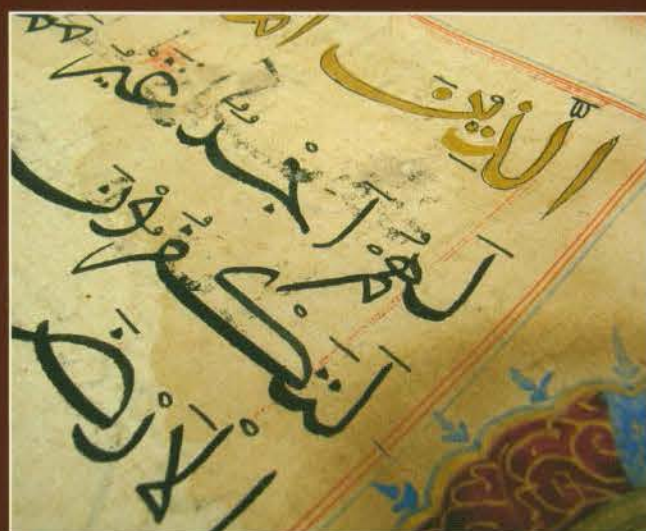 الَّذِينَ
لَهُمْ أَجْرٌ غَيْرُ
لَتَكْفُرُونَ
الْأَرْضَ